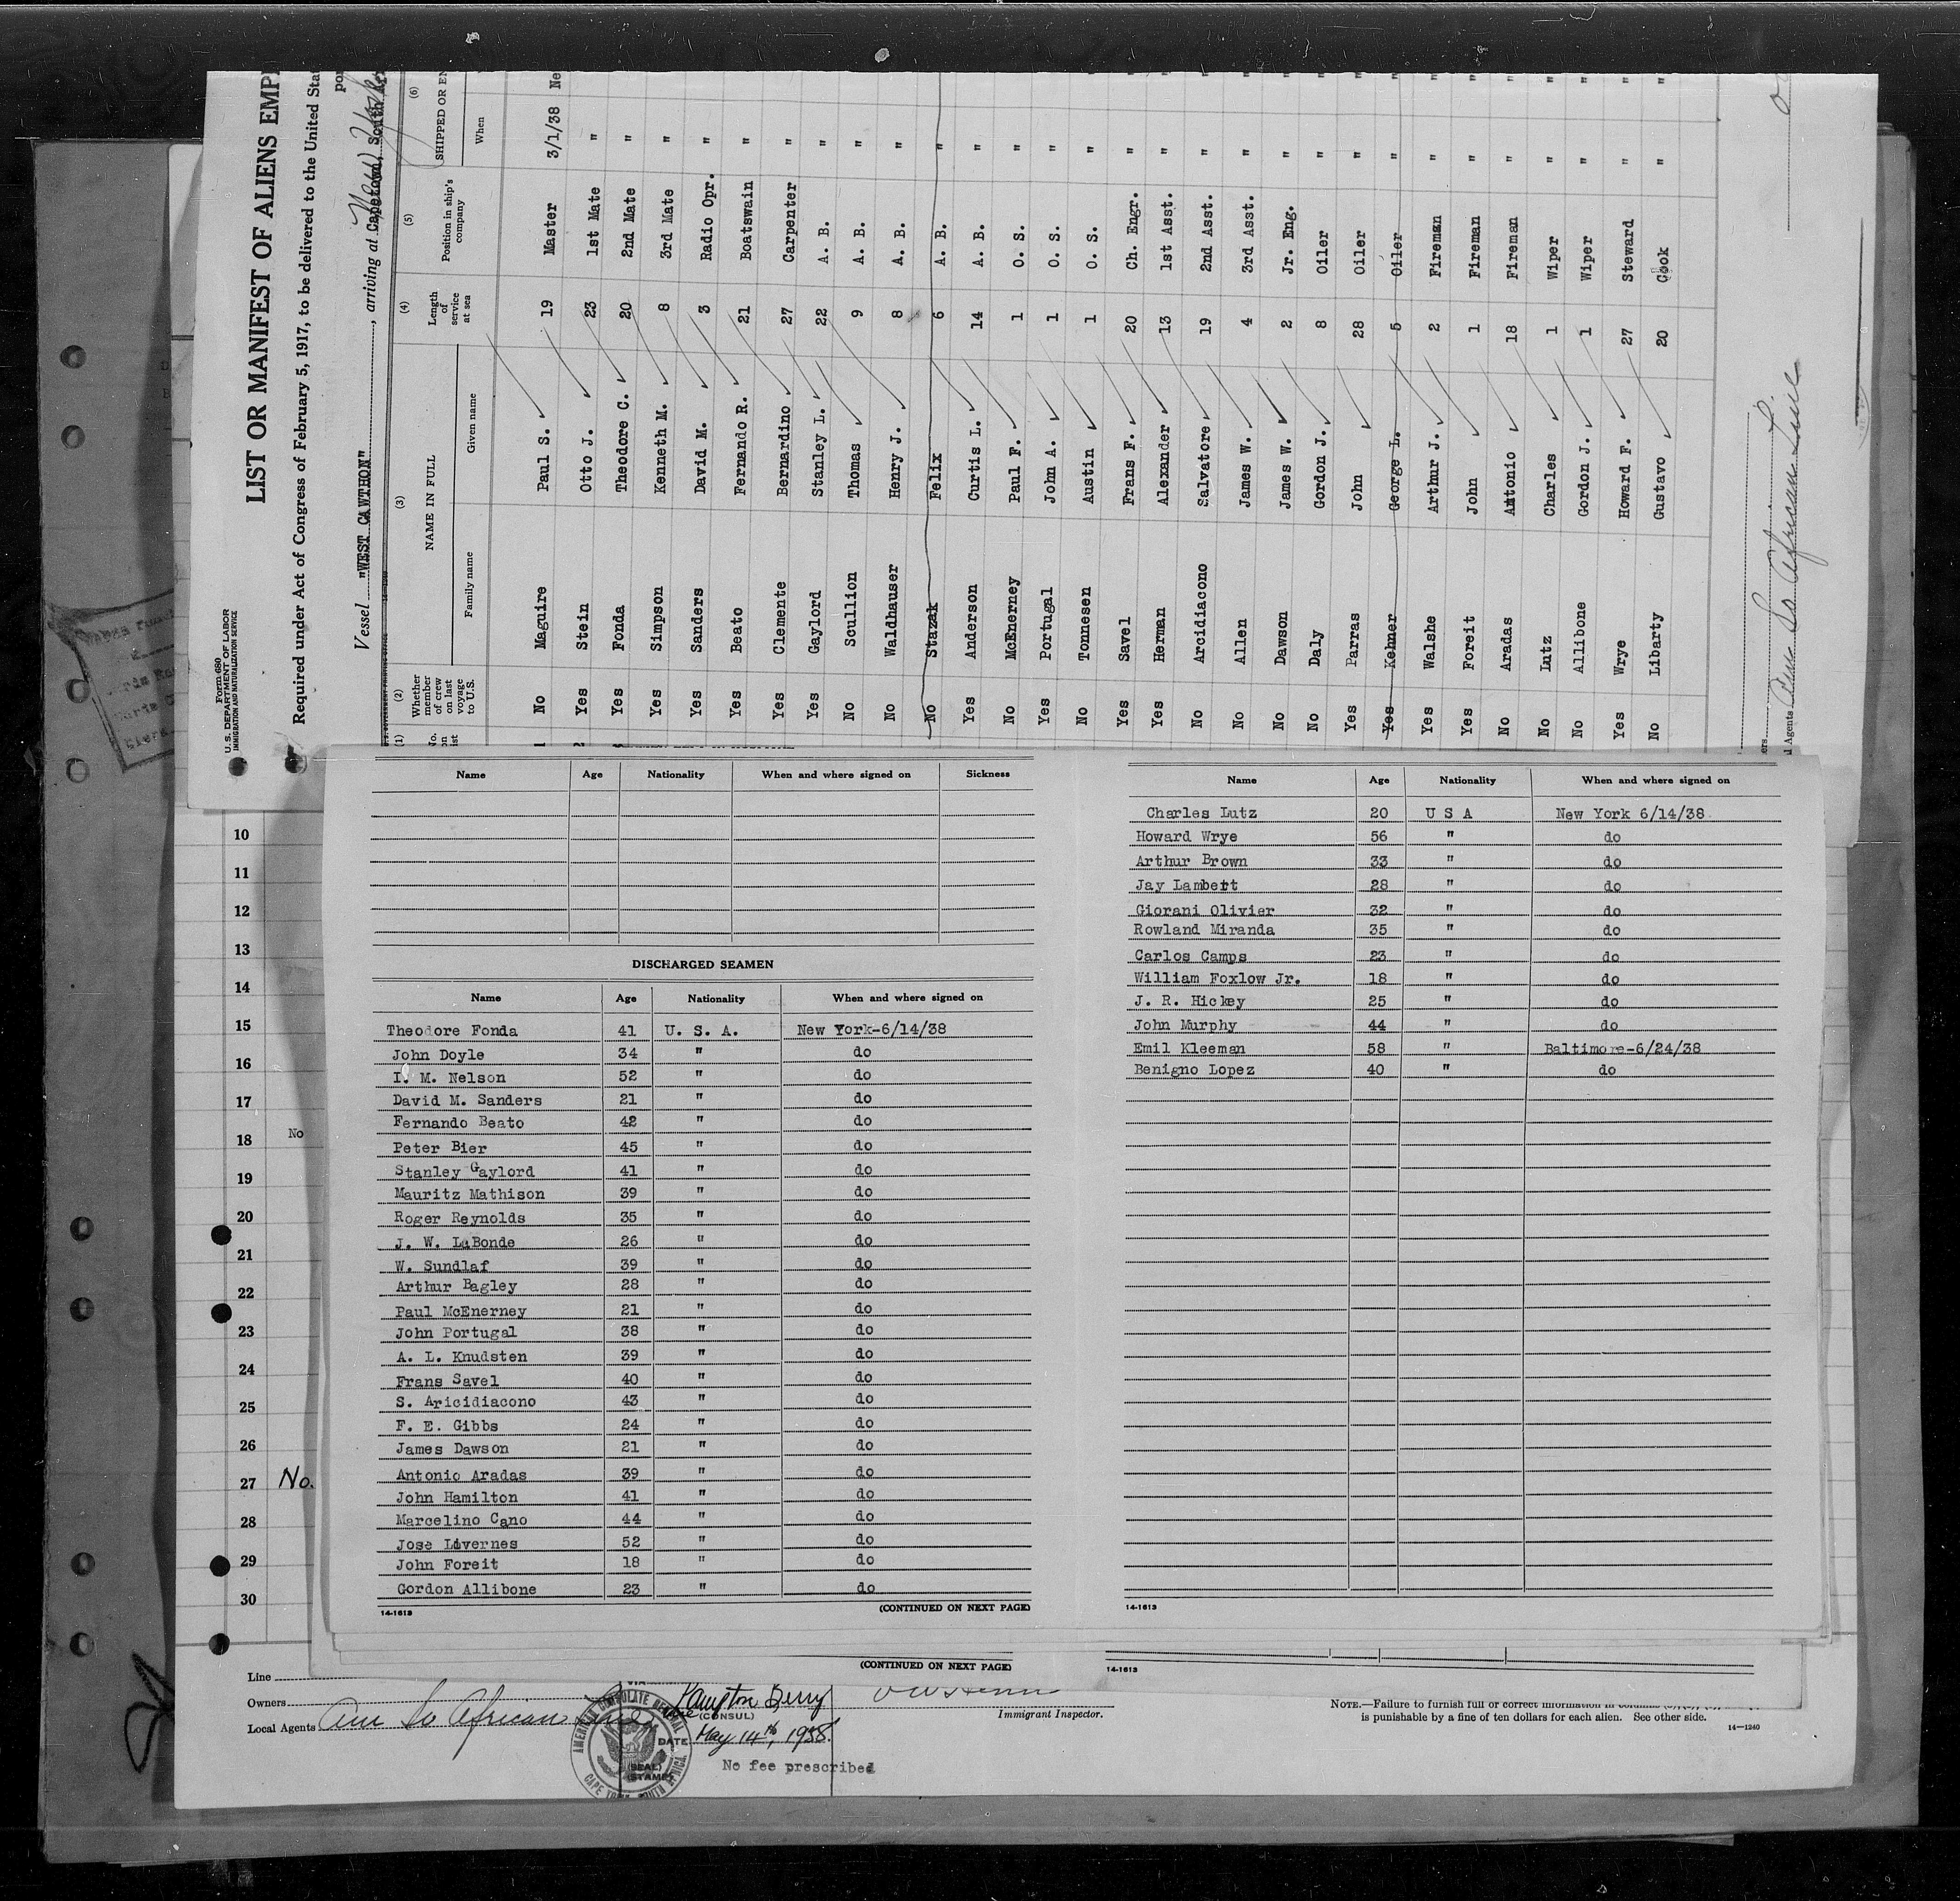 Form 680
U. S. DEPARTMENT OF LABOR
IMMIGRATION AND NATURALIZATION SERVICE
LIST OR MANIFEST OF ALIENS EMPL
Required under Act of Congress of February 5, 1917, to be delivered to the United Stat
Vessel "WEST CAWTHON", arriving at Capetown, South Af New York
(1) (2) (3) (4) (5) (6)
No. on list Whether member of crew on last voyage to U.S. NAME IN FULL Length of service at sea Position in ship's company SHIPPED OR EN
Family name Given name When
1 No Maguire Paul S. 19 Master 3/1/38 Ne
2 Yes Stein Otto J. 23 1st Mate " "
Yes Fonda Theodore C. 20 2nd Mate " "
Yes Simpson Kenneth M. 8 3rd Mate " "
Yes Sanders David M. 3 Radio Opr. " "
Yes Beato Fernando R. 21 Boatswain " "
Yes Clemente Bernardino 27 Carpenter " "
Yes Gaylord Stanley L. 22 A. B. " "
No Scullion Thomas 9 A. B. " "
No Waldhauser Henry J. 8 A. B. " "
No Stazak Felix 6 A. B. " "
Yes Anderson Curtis L. 14 A. B. " "
No McEnerney Paul F. 1 O. S. " "
Yes Portugal John A. 1 O. S. " "
No Tonnesen Austin 1 O. S. " "
Yes Savel Frans F. 20 Ch. Engr. " "
Yes Herman Alexander 13 1st Asst. " "
No Arcidiacono Salvatore 19 2nd Asst. " "
No Allen James W. 4 3rd Asst. " "
No Dawson James W. 2 Jr. Eng. " "
No Daly Gordon J. 8 Oiler " "
Yes Parras John 28 Oiler " "
Yes Kehner George L. 5 Oiler " "
Yes Walshe Arthur J. 2 Fireman " "
Yes Foreit John 1 Fireman " "
No Aradas Antonio 18 Fireman " "
No Lutz Charles 1 Wiper " "
No Allibone Gordon J. 1 Wiper " "
Yes Wrye Howard F. 27 Steward " "
No Libarty Gustavo 20 Cook " "
ers
l Agents Am So African Line
10
11
12
13
14
15
16
17
18 No
19
20
21
22
23
24
25
26
27 No.
28
29
30
Name Age Nationality When and where signed on Sickness
DISCHARGED SEAMEN
Name Age Nationality When and where signed on
Theodore Fonda 41 U. S. A. New York-6/14/38
John Doyle 34 " do
I. M. Nelson 52 " do
David M. Sanders 21 " do
Fernando Beato 42 " do
Peter Bier 45 " do
Stanley Gaylord 41 " do
Mauritz Mathison 39 " do
Roger Reynolds 35 " do
J. W. LaBonde 26 " do
W. Sundlaf 39 " do
Arthur Bagley 28 " do
Paul McEnerney 21 " do
John Portugal 38 " do
A. L. Knudsten 39 " do
Frans Savel 40 " do
S. Aricidiacono 43 " do
F. E. Gibbs 24 " do
James Dawson 21 " do
Antonio Aradas 39 " do
John Hamilton 41 " do
Marcelino Cano 44 " do
Jose Livernes 52 " do
John Foreit 18 " do
Gordon Allibone 23 " do
14-1613 (CONTINUED ON NEXT PAGE)
Name Age Nationality When and where signed on
Charles Lutz 20 U S A New York 6/14/38
Howard Wrye 56 " do
Arthur Brown 33 " do
Jay Lambert 28 " do
Giorani Olivier 32 " do
Rowland Miranda 35 " do
Carlos Camps 23 " do
William Foxlow Jr. 18 " do
J. R. Hickey 25 " do
John Murphy 44 " do
Emil Kleeman 58 " Baltimore-6/24/38
Benigno Lopez 40 " do
14-1613
(CONTINUED ON NEXT PAGE) 14-1613
Line
Owners
Local Agents Am So African Line
(CONSUL)
DATE May 14th, 1938.
AMERICAN CONSULATE GENERAL
(SEAL)
(STAMP)
CAPE TOWN, SOUTH AFRICA
No fee prescribed
Immigrant Inspector.
NOTE.—Failure to furnish full or correct information in columns
is punishable by a fine of ten dollars for each alien. See other side.
14—1240